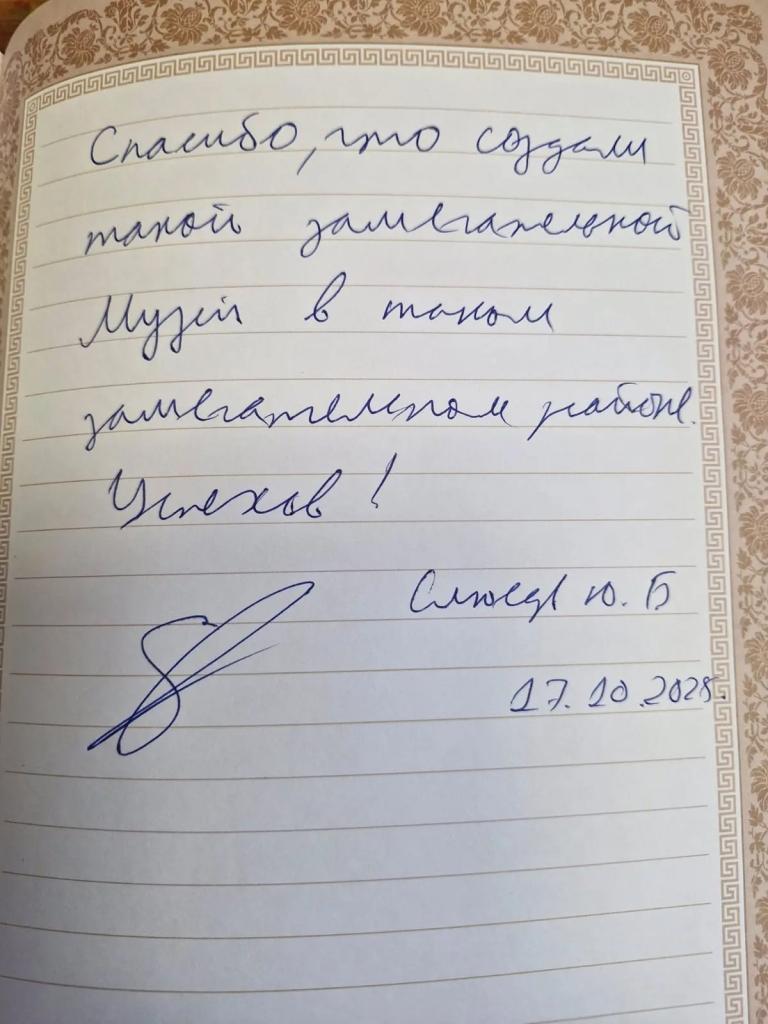 Спасибо, что создали
такой замечательной
Музей в таком
замечательном районе.
Успехов!
Ю. Б
17.10.2025.